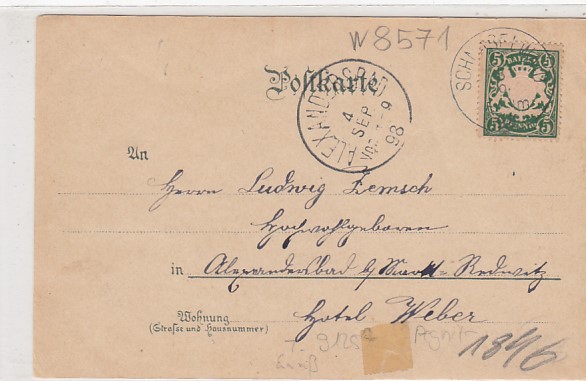 W 8571
Postkarte
ALEXANDERSBAD
4
SEP
98
BAYERN
5 5
5 PFENNIG 5
An
Herrn Ludwig Zemsch
Hochwohlgeboren
in Alexandersbad b/ Markt-Redwitz
Wohnung
(Straße und Hausnummer)
Hotel Weber
1846